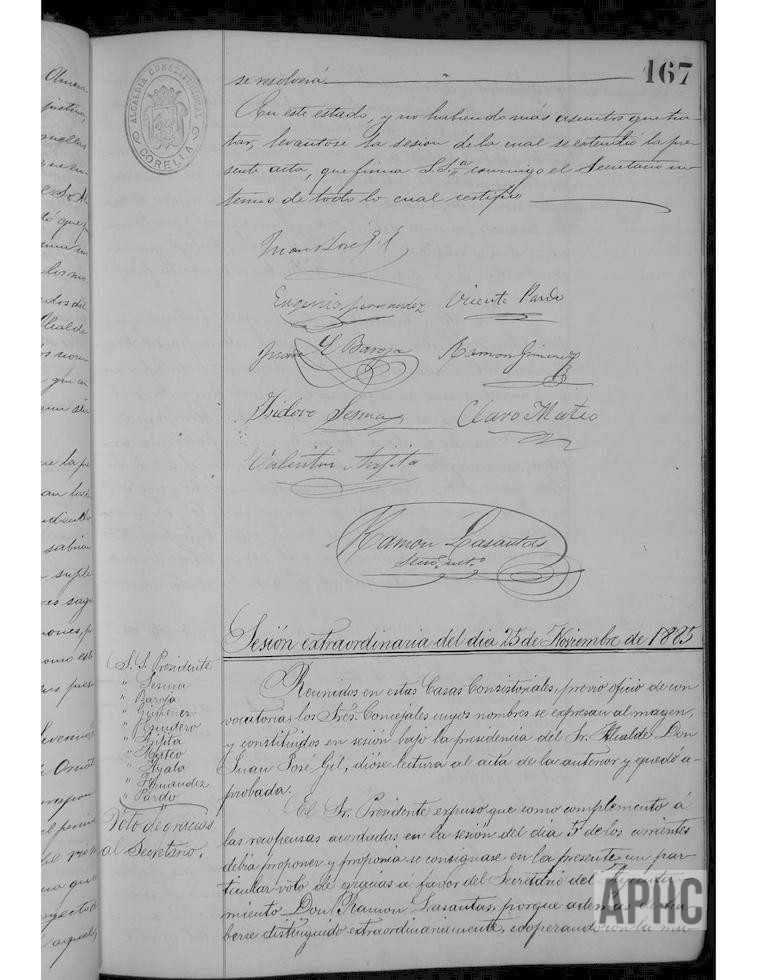 167
ALCALDIA CONSTITUCIONAL
CORELLA
se resolverá.
En este estado, y no habiendo más asuntos que tra-
tar, levantose la sesion de la cual se extendió la pre-
sente acta, que firma S. S.ª conmigo el Secretario in-
terino de todo lo cual certifico
Juan José Gil
Eugenio Fernandez Vicente Pardo
Juan Baroja Ramon Gimenez
Isidoro Sesma Claro Mateo
Valentin Arifita
Ramon Lasantas
Secº. intº.
Sesión extraordinaria del dia 25 de Noviembre de 1885
S. S. Presidente
" Sesma
" Baroja
" Gimenez
" Arifita
" Mateo
" Ayala
" Fernandez
" Pardo
Voto de gracias
al Secretario.
Reunidos en estas Casas Consistoriales, previo oficio de con
vocatoria, los Sres. Concejales cuyos nombres se expresan al magen,
y constituidos en sesión bajo la presidencia del Sr. Alcalde Don
Juan José Gil, dióse lectura al acta de la anterior y quedó a-
probada.
El Sr. Presidente expuso que como complemento á
las recopensas acordadas en la sesión del dia 5 de los corrientes
debía proponer y proponia se consignase en la presente un par-
ticular voto de gracias á favor del Secretario del Ayunta
miento Don Ramon Lasantas, porque además de ha
berse distinguido extraordinariamente, cooperando con la ma
APHC